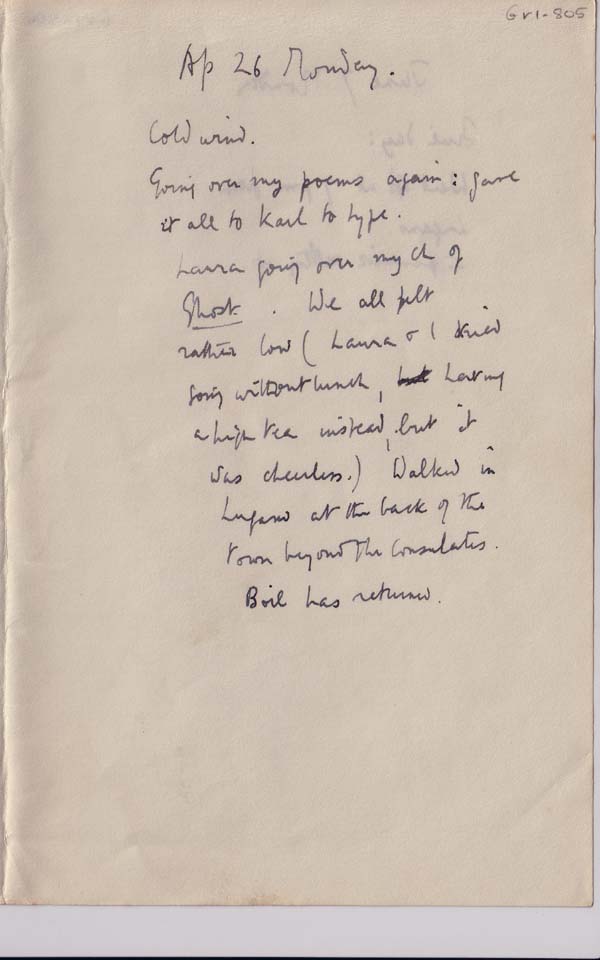 Gr1-805
Ap 26 Monday.
Cold wind.
Going over my poems again: gave
it all to Karl to type.
Laura going over my ch of
Ghost. We all felt
rather low (Laura & I tried
going without lunch, but having
a high tea instead, but it
was cheerless.) Walked in
Lugano at the back of the
town beyond the Consulates.
Boil has returned.